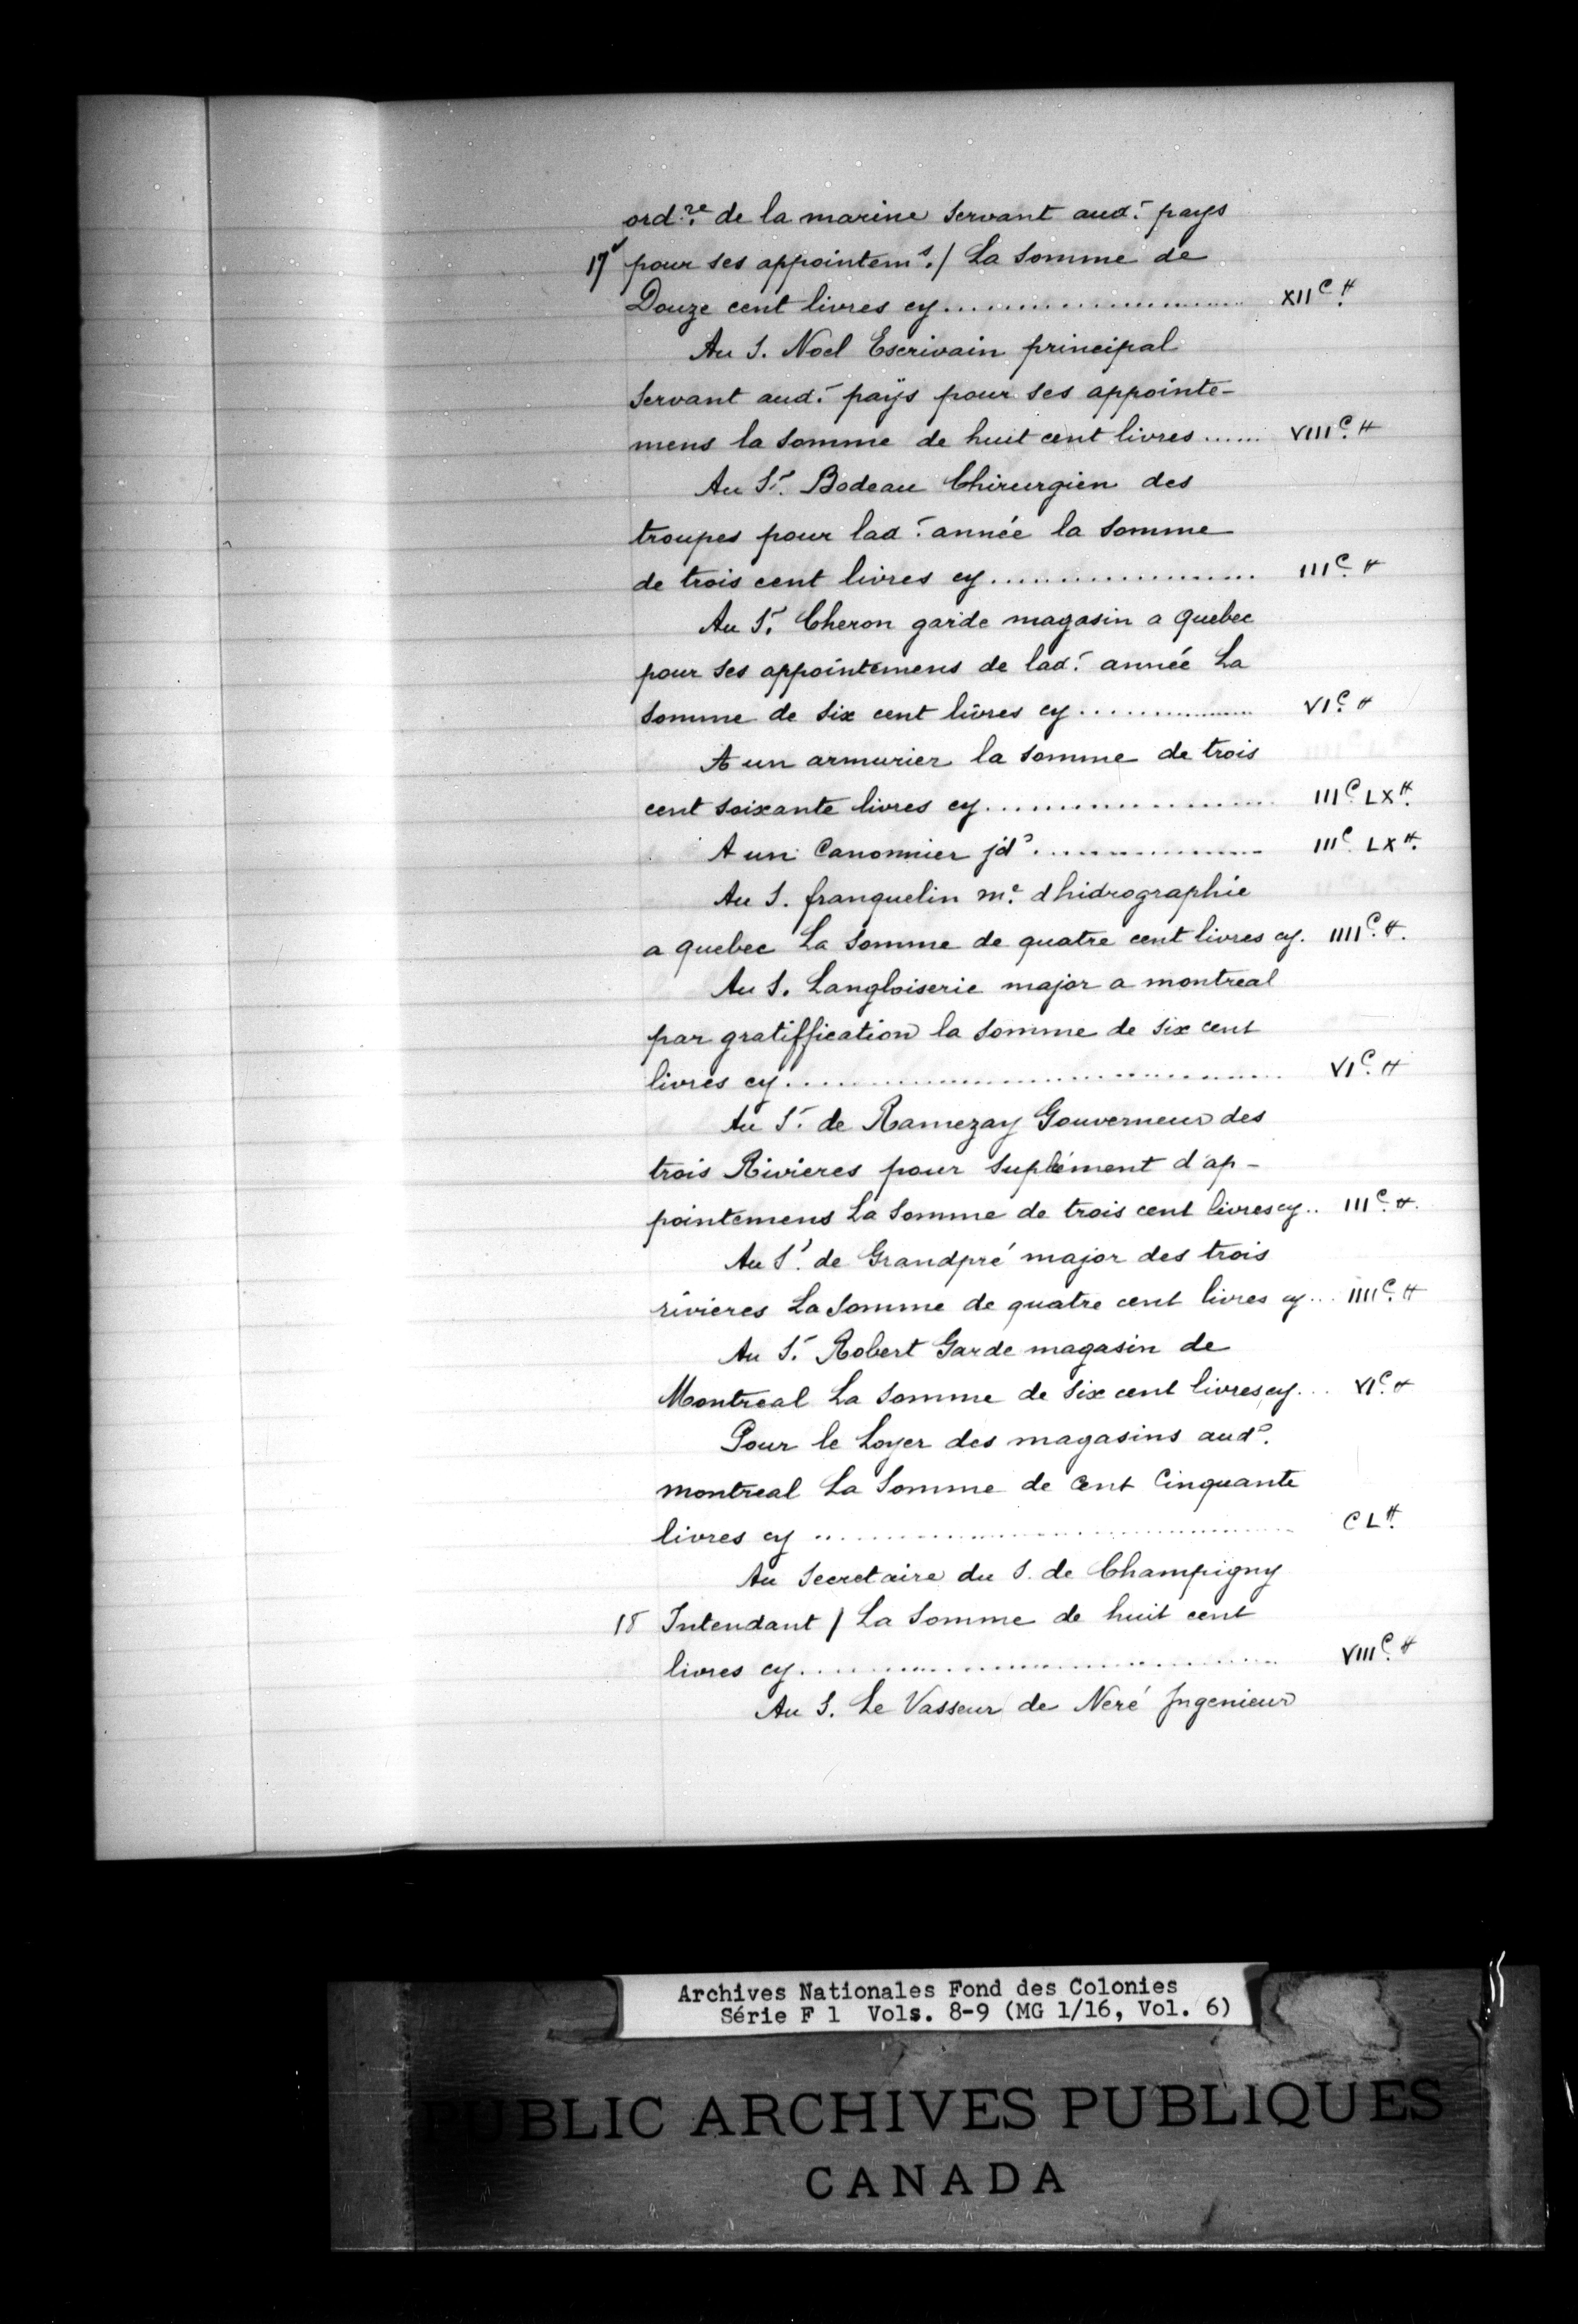 ord.re de la marine Servant aud.t pays
17v pour ses appointem.s / La Somme de
Douze cent livres cy........................ XII C. ₶
Au S. Noel Escrivain principal
Servant aud.t païs pour ses appointe-
mens la Somme de huit cent livres...... VIII C. ₶
Au S.r Bodeau Chirurgien des
troupes pour lad.t année la Somme
de trois cent livres cy................... III C. ₶
Au S.r Cheron garde magasin a Quebec
pour ses appointemens de lad.t année La
Somme de Six cent livres cy................ VI C. ₶
A un armurier la Somme de trois
cent Soixante livres cy..................... III C. LX ₶.
A un Canonnier jd.o................. III C LX ₶.
Au S. franquelin m.e dhidrographie
a quebec La Somme de quatre cent livres cy. IIII C. ₶.
Au S. Langloiserie major a montreal
par gratiffication la Somme de Six cent
livres cy................................... VI C. ₶
Au S.r de Ramezay Gouverneur des
trois Rivieres pour Suplément d'ap-
pointemens La Somme de trois cent livres cy.. III C. ₶.
Au S.r de Grandpré major des trois
rivieres La Somme de quatre cent livres cy... IIII C. ₶
Au S.r Robert Garde magasin de
Montreal La Somme de Six cent livres cy... VI C. ₶
Pour le Loyer des magasins aud.o
montreal La Somme de Cent Cinquante
livres cy ................................... C L ₶.
Au Secretaire du S. de Champigny
18 Intendant / La Somme de huit cent
livres cy................................... VIII C. ₶
Au S. Le Vasseur de Neré Jngenieur
Archives Nationales Fond des Colonies
Série F 1 Vols. 8-9 (MG 1/16, Vol. 6)
PUBLIC ARCHIVES PUBLIQUES
CANADA